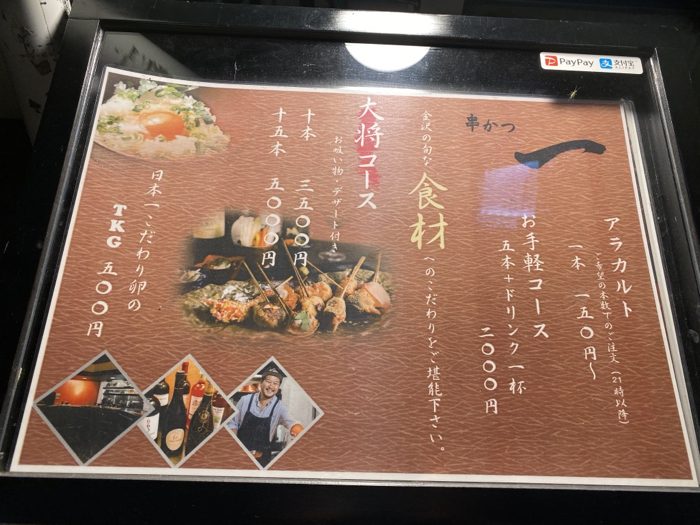 PayPay 支付宝
ALIPAY
串かつ
一
アラカルト
ご希望の本数でのご注文(21時以降)
一本 一五〇円〜
お手軽コース
五本+ドリンク一杯
二〇〇〇円
金沢の旬な
食材
へのこだわりをご堪能下さい。
大将コース
お吸い物・デザート付き
十本 三五〇〇円
十五本 五〇〇〇円
日本一こだわり卵の
TKG 五〇〇円